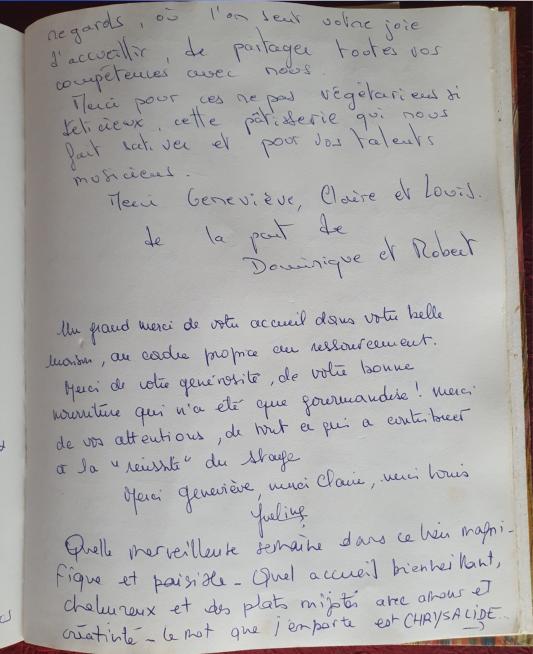 regards, où l'on sent votre joie
d'accueillir, de partager toutes vos
compétences avec nous.
Merci pour ces repas végétariens si
délicieux, cette pâtisserie qui nous
fait saliver et pour vos talents
musiciens.
Merci Geneviève, Claire et Louis.
de la part de
Dominique et Robert
Un grand merci de votre accueil dans votre belle
maison, au cadre propice au ressourcement.
Merci de votre générosité, de votre bonne
nourriture qui n'a été que gourmandise ! merci
de vos attentions, de tout ce qui a contribuer
à la "réussite" du stage
Merci Geneviève, merci Claire, merci Louis
Yveline
Quelle merveilleuse semaine dans ce lieu magni-
fique et paisible - Quel accueil bienveillant,
chaleureux et des plats mijotés avec amour et
créativité - le mot que j'emporte est CHRYSALIDE